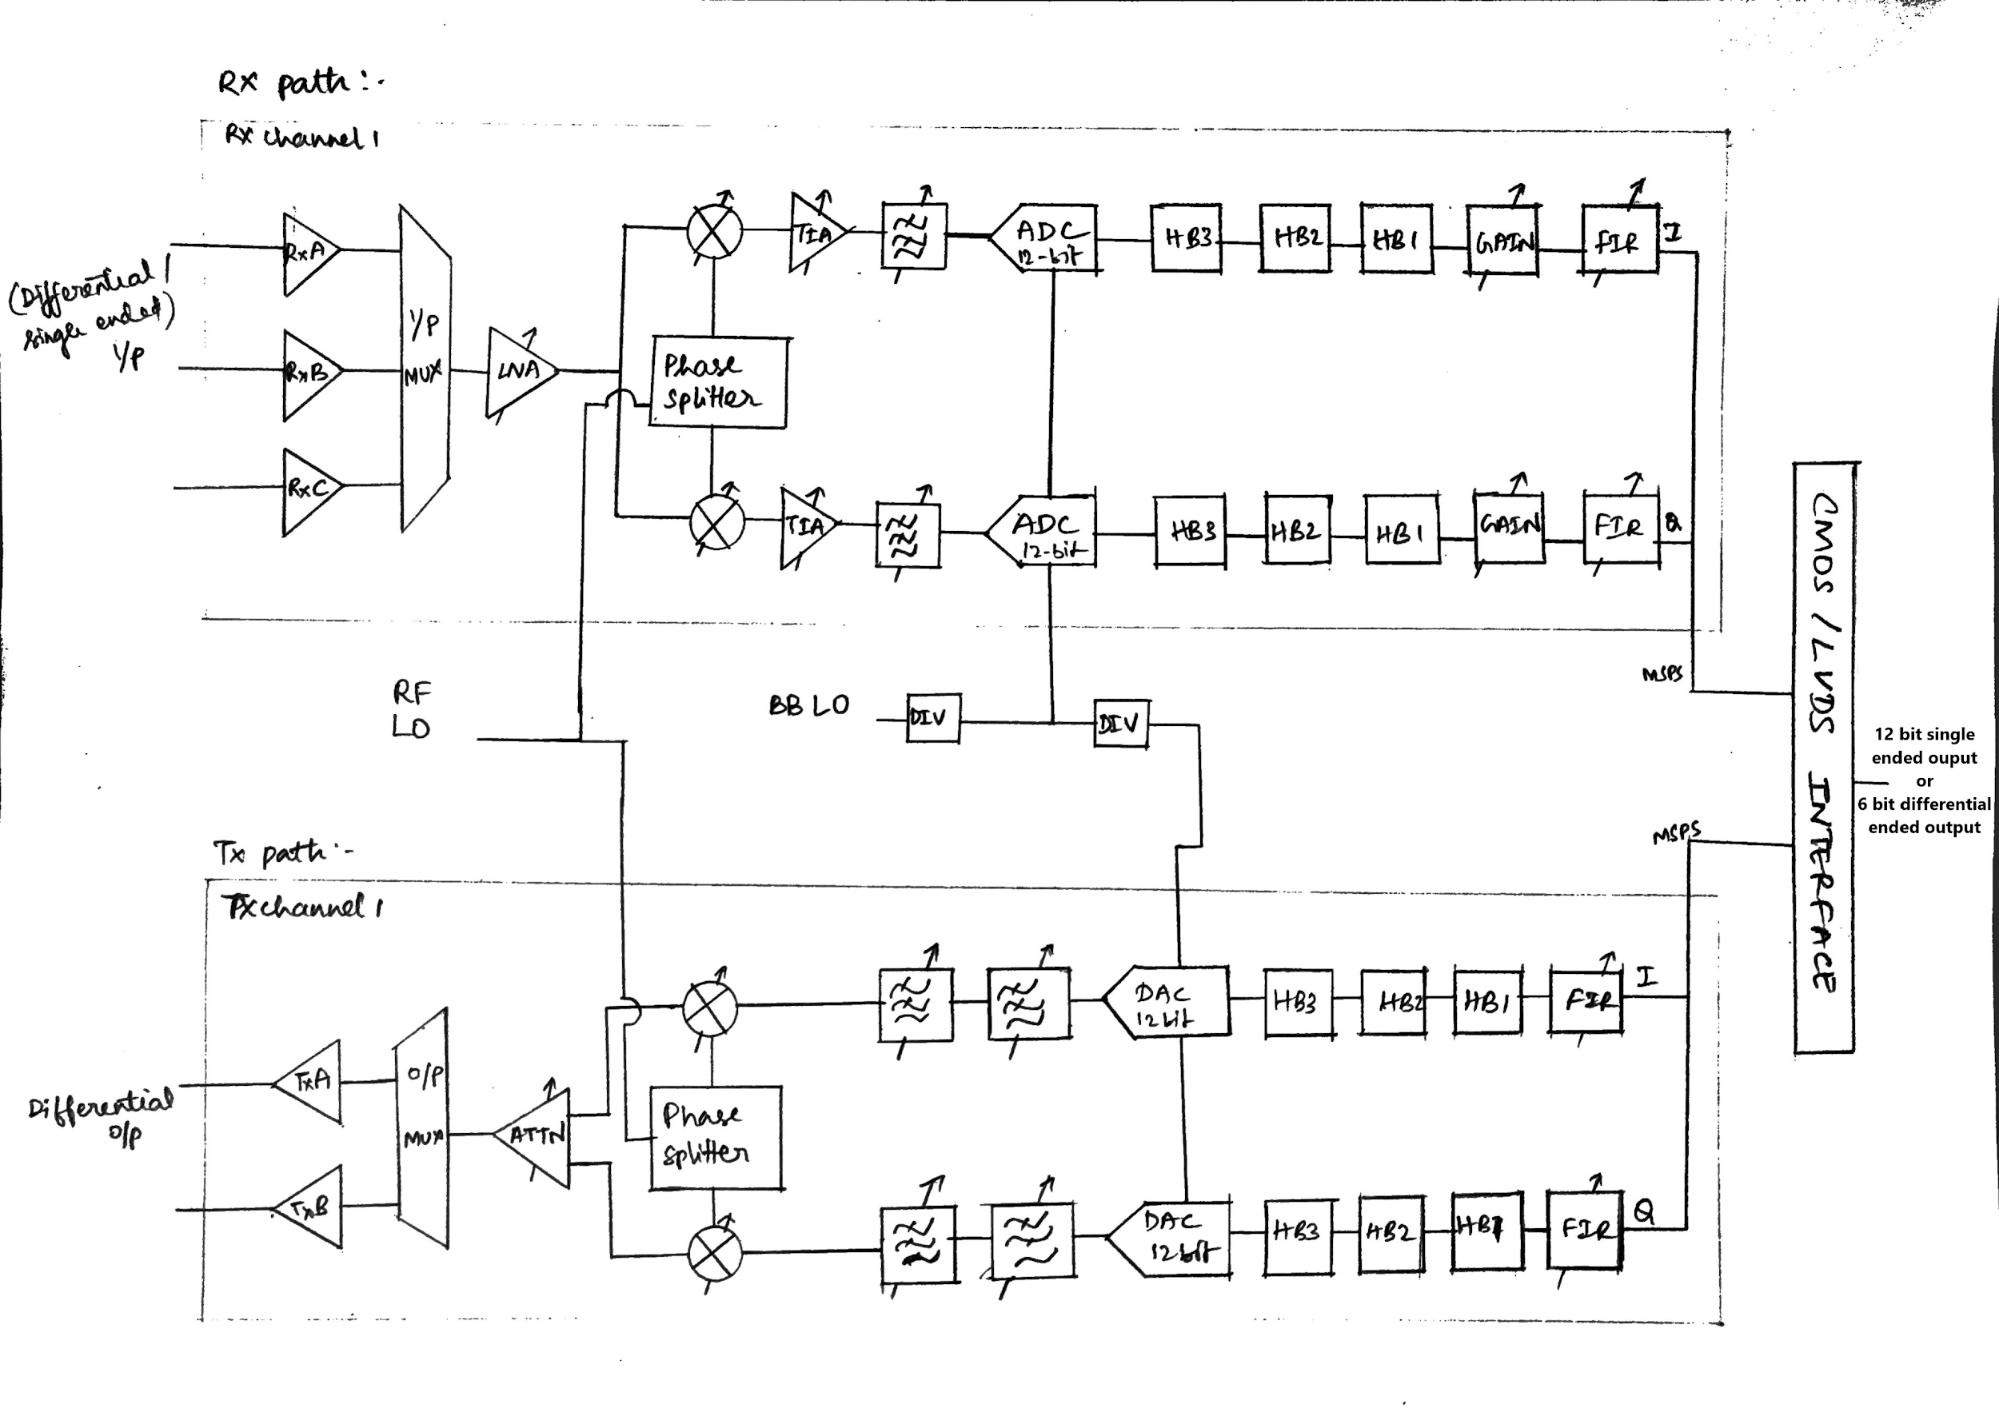 Rx path:-
Rx channel 1
(Differential /
single ended)
I/P
RxA
RxB
RxC
I/P
MUX
LNA
Phase
splitter
TIA
ADC
12-bit
HB3
HB2
HB1
GAIN
FIR
I
TIA
ADC
12-bit
HB3
HB2
HB1
GAIN
FIR
Q
MSPS
RF
LO
BB LO
DIV
DIV
CMOS / LVDS INTERFACE
12 bit single
ended ouput
or
6 bit differential
ended output
MSPS
Tx path:-
Tx channel 1
Differential
O/P
TxA
TxB
O/P
MUX
ATTN
Phase
splitter
DAC
12 bit
HB3
HB2
HB1
FIR
I
DAC
12 bit
HB3
HB2
HB1
FIR
Q